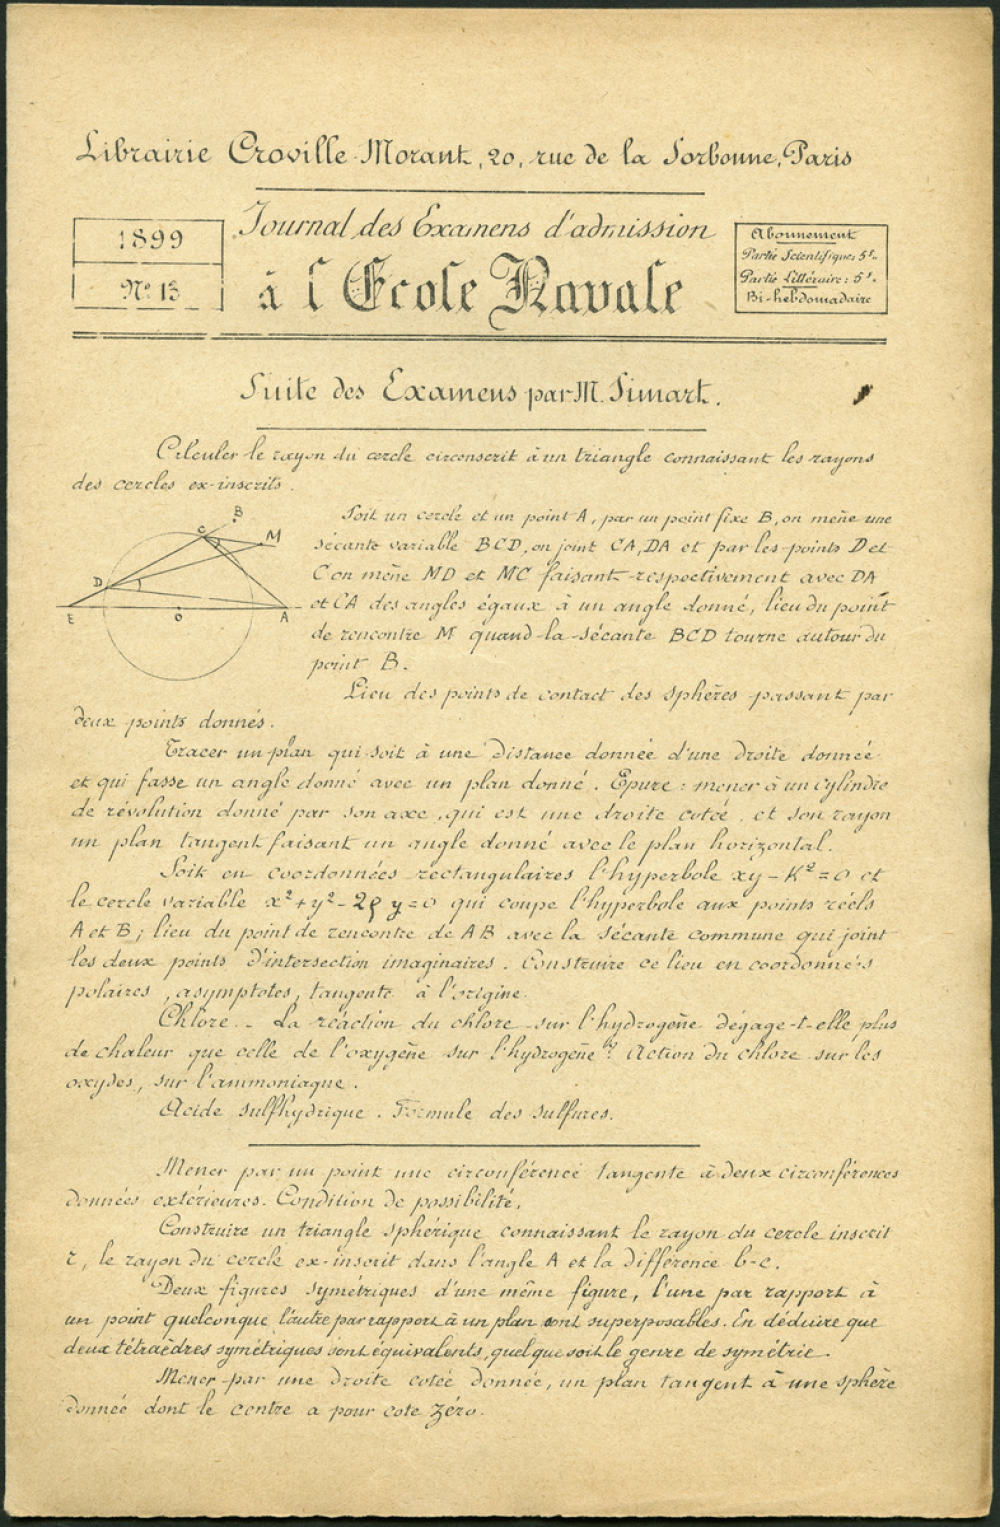 Librairie Croville-Morant, 20, rue de la Sorbonne, Paris
1899
Nº 13
Journal des Examens d'admission
à l'Ecole Navale
Abonnement
Partie Scientifique: 5f.
Partie Littéraire: 5f.
Bi-hebdomadaire
Suite des Examens par M. Simart.
Calculer le rayon du cercle circonscrit à un triangle connaissant les rayons
des cercles ex-inscrits.
B
C
M
D
E
O
A
Soit un cercle et un point A, par un point fixe B, on mène une
sécante variable BCD, on joint CA, DA et par les points D et
C on mène MD et MC faisant respectivement avec DA
et CA des angles égaux à un angle donné, lieu du point
de rencontre M quand la sécante BCD tourne autour du
point B.
Lieu des points de contact des sphères passant par
deux points donnés.
Tracer un plan qui soit à une distance donnée d'une droite donnée
et qui fasse un angle donné avec un plan donné. Epure: mener à un cylindre
de révolution donné par son axe, qui est une droite cotée, et son rayon
un plan tangent faisant un angle donné avec le plan horizontal.
Soit en coordonnées rectangulaires l'hyperbole xy - K² = 0 et
le cercle variable x² + y² - 2ρy = 0 qui coupe l'hyperbole aux points réels
A et B; lieu du point de rencontre de AB avec la sécante commune qui joint
les deux points d'intersection imaginaires. Construire ce lieu en coordonnés
polaires, asymptotes, tangente à l'origine.
Chlore. - La réaction du chlore sur l'hydrogène dégage-t-elle plus
de chaleur que celle de l'oxygène sur l'hydrogène? Action du chlore sur les
oxydes, sur l'ammoniaque.
Acide sulfhydrique. Formule des sulfures.
Mener par un point une circonférence tangente à deux circonférences
données extérieures. Condition de possibilité.
Construire un triangle sphérique connaissant le rayon du cercle inscrit
r, le rayon du cercle ex-inscrit dans l'angle A et la différence b-c.
Deux figures symétriques d'une même figure, l'une par rapport à
un point quelconque l'autre par rapport à un plan sont superposables. En déduire que
deux tétraèdres symétriques sont équivalents, quel que soit le genre de symétrie.
Mener par une droite cotée donnée, un plan tangent à une sphère
donnée dont le centre a pour cote zéro.